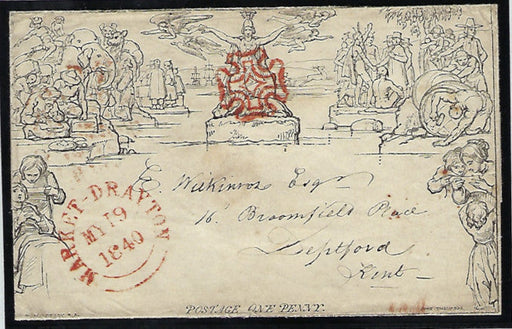 MARKET-DRAYTON
MY 19
1840
Esqr
16. Broomfield Place
Deptford
Kent
POSTAGE ONE PENNY.